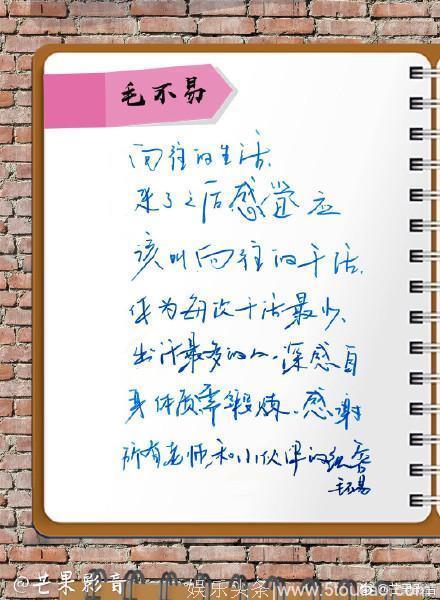 毛不易
向往的生活.
来了之后感觉应
该叫向往的干活.
作为每次干活最少、
出汗最多的人.深感自
身体质需锻炼.感谢
所有老师和小伙伴的包容
毛不易
@芒果影音
娱乐头条
www.5tou